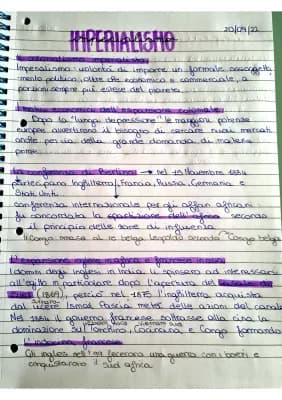 20/09/22
IMPERIALISMO
Il colonialismo imperialista
Imperialismo: volontà di imporre un formale assoggetta-
mento politico, oltre che economico e commerciale, a
porzioni sempre più estese del pianeta.
I motivi economici dell'espansione coloniale
Dopo la "lunga depressione" le maggiori potenze
europee avvertirono il bisogno di cercare nuovi mercati
anche per via della grande domanda di materie
prime.
La conferenza di Berlino → nel 15 Novembre 1884
partecipano Inghilterra, Francia, Russia, Germania e
Stati Uniti
conferenza internazionale per gli affari africani
fu concordata la spartizione dell'africa secondo
il principio delle zone di influenza
Congo belga
L'espansione inglese in africa e francese in asia
I domini degli inglesi in India li spinsero ad interessarsi
all'Egitto in particolare dopo l'apertura del canale di
Suez (1869), perciò nel 1875 l'inghilterra acquista
dal viceré Ismail Pascià metà delle azioni del canale
Nel 1884 il governo francese sottrasse alla cina la
dominazione sul Tonchino, Cocincina e Congo formando
l'indocina francese
Gli inglesi nell' fecero una guerra con i boeri e
conquistarono il sud africa